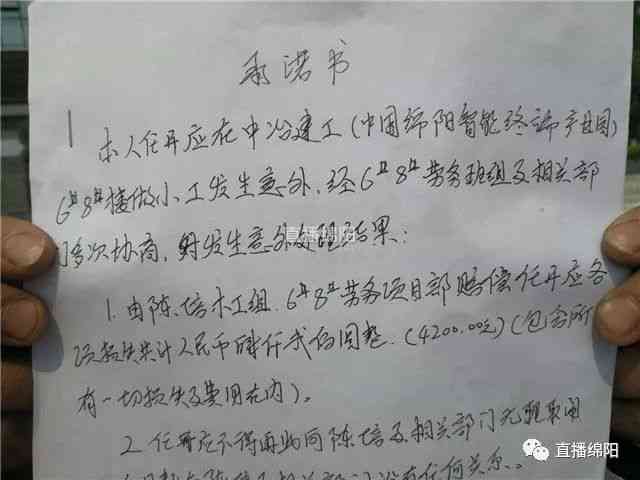 承诺书
本人任开应在中冶建工(中国绵阳智能终端产业园)
6#8#楼做小工发生意外,经6#8#劳务班组及相关部
门多次协商,对发生意外处理结果:
直播绵阳
1.由陈培木工组.6#8#劳务项目部赔偿任开应各
项损失共计人民币肆仟贰佰圆整.(4200.00元)(包含所
有一切损失及费用在内)。
2.任开应不得再向陈培及相关部门无理取闹
没有任何关系。
直播绵阳